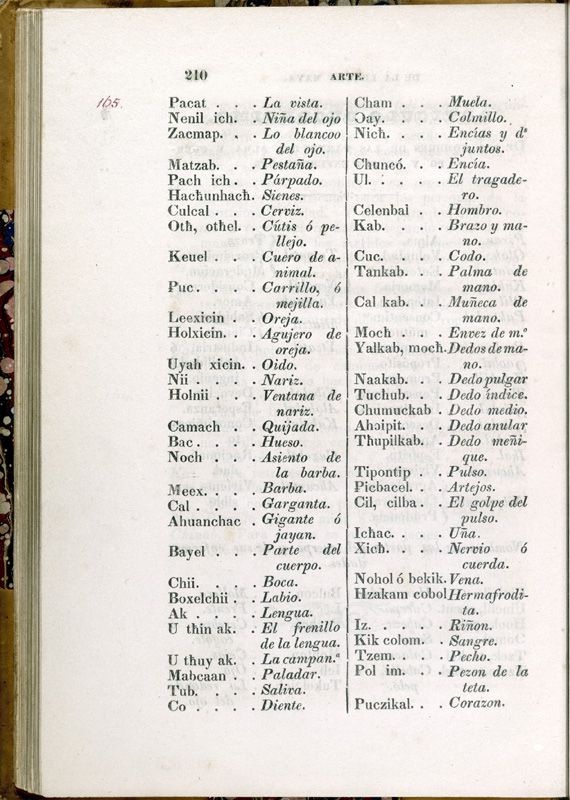 210 ARTE.
165.
Pacat . . . La vista.
Nenil ich. . Niña del ojo
Zacmap. . . Lo blancoo
del ojo.
Matzab. . . Pestaña.
Pach ich. . Párpado.
Hacħunhacħ. Sienes.
Culcal . . . Cerviz.
Oth, othel. . Cútis ó pe-
llejo.
Keuel . . . Cuero de a-
nimal.
Puc. . . . Carrillo, ó
mejilla.
Leexicin . . Oreja.
Holxicin. . . Agujero de
oreja.
Uyah xicin. . Oido.
Nii . . . . Nariz.
Holnii . . . Ventana de
nariz.
Camach . . Quijada.
Bac . . . . Hueso.
Noch . . . Asiento de
la barba.
Meex. . . . Barba.
Cal . . . . Garganta.
Ahuanchac . Gigante ó
jayan.
Bayel . . . Parte del
cuerpo.
Chii. . . . Boca.
Boxelchii . . Labio.
Ak . . . . Lengua.
U thin ak. . El frenillo
de la lengua.
U thuy ak. . La campan.ª
Mabcaan . . Paladar.
Tub. . . . Saliva.
Co . . . . Diente.
Cham . . . Muela.
Ɔay. . . . Colmillo.
Nicħ. . . . Encías y dˢ
juntos.
Chuncó. . . Encía.
Ul. . . . . El tragade-
ro.
Celenbal . . Hombro.
Kab. . . . Brazo y ma-
no.
Cuc. . . . Codo.
Tankab. . . Palma de
mano.
Cal kab. . . Muñeca de
mano.
Mocħ . . . Envez de m.º
Yalkab, mocħ. Dedos de ma-
no.
Naakab. . . Dedo pulgar
Tuchub. . . Dedo índice.
Chumuckab . Dedo medio.
Ahɔipit. . . Dedo anular
Thupilkab. . Dedo meñi-
que.
Tipontip . . Pulso.
Picbacel. . . Artejos.
Cil, cilba. . El golpe del
pulso.
Icħac. . . . Uña.
Xicħ. . . . Nervio ó
cuerda.
Nohol ó bekik. Vena.
Hzakam cobol Hermafrodi-
ta.
Iz. . . . . Riñon.
Kik colom. . Sangre.
Tzem. . . . Pecho.
Pol im. . . Pezon de la
teta.
Puczikal. . . Corazon.